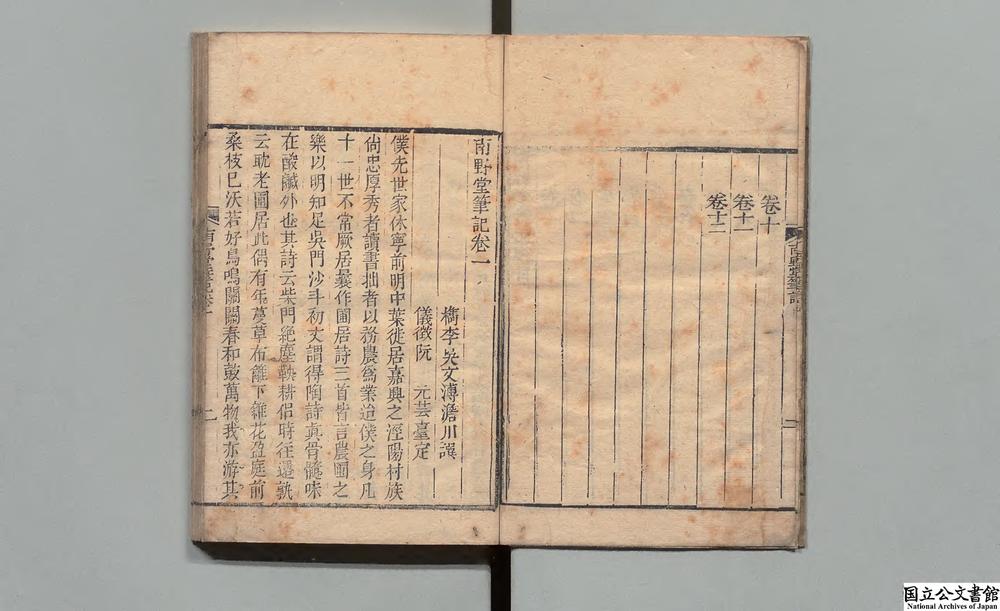 卷十
卷十一
卷十二
南野堂筆記
南野堂筆記卷一
檇李吳文溥澹川譔
儀徵阮　元芸臺定
僕先世家休寧前明中葉徙居嘉興之涇陽村族
尙忠厚秀者讀書拙者以務農爲業迨僕之身凡
十一世不常厥居曩作圃居詩三首皆言農圃之
樂以明知足吳門沙斗初丈謂得陶詩眞骨髓味
在酸鹹外也其詩云柴門絶塵鞅耕侣時往還孰
云耽老圃居此偶有年蔓草布籬下雜花盈庭前
桑枝已沃若好鳥鳴關關春和鼓萬物我亦游其
国立公文書館
National Archives of Japan